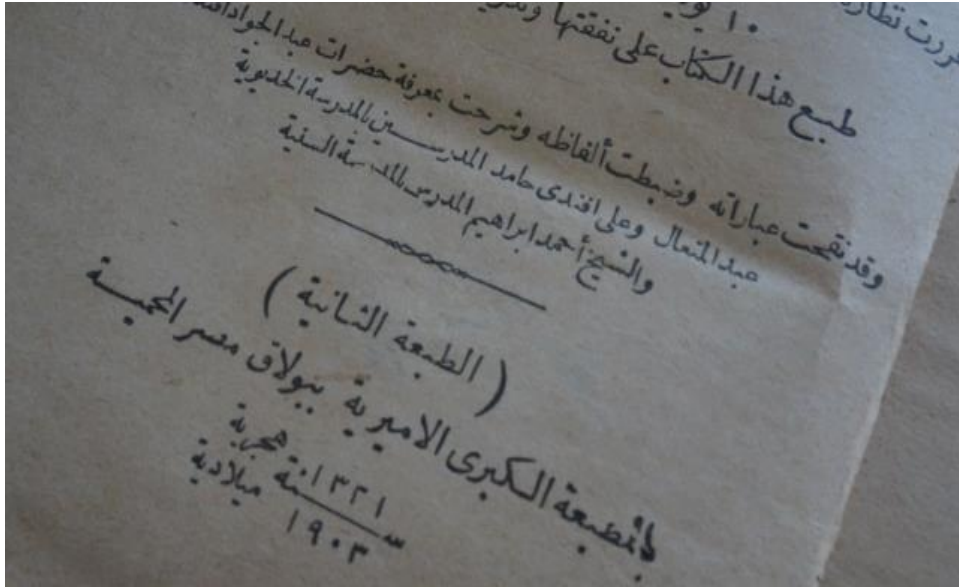 قررت نظارة
١٠
طبع هذا الكتاب على نفقتها
وقد نقحت عباراته وضبطت ألفاظه وشرحت بمعرفة حضرات عبد الجواد افندى
عبد المتعال وعلى افندى حامد المدرسين بالمدرسة الخديوية
والشيخ أحمد ابراهيم المدرس بالمدرسة السنية
( الطبعة الثانية )
بالمطبعة الكبرى الاميرية ببولاق مصر المحمية
١٣٢١ هجرية
سنة
١٩٠٣ ميلادية